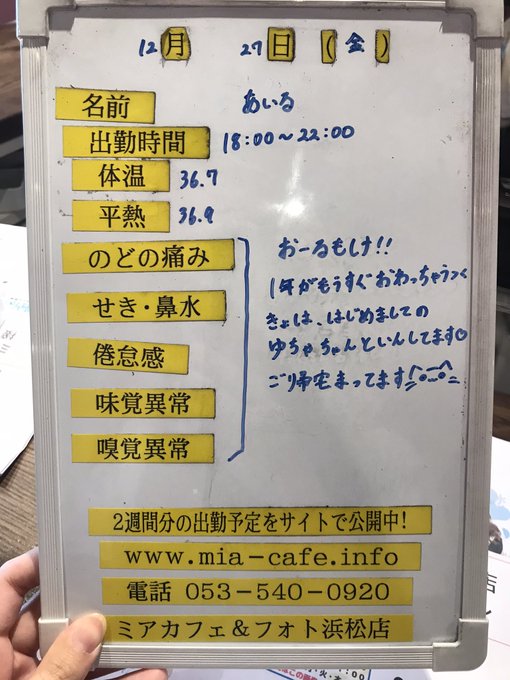 12月 27日 (金)
名前 あいる
出勤時間 18:00〜22:00
体温 36.7
平熱 36.9
のどの痛み
せき・鼻水
倦怠感
味覚異常
嗅覚異常
おーるもーけ!!
1年がもうすぐおわっちゃうっく
きょは、はじめましての
ゆちゃちゃんといんしてます♡
ご帰宅まってます
2週間分の出勤予定をサイトで公開中!
www.mia-cafe.info
電話 053-540-0920
ミアカフェ&フォト浜松店